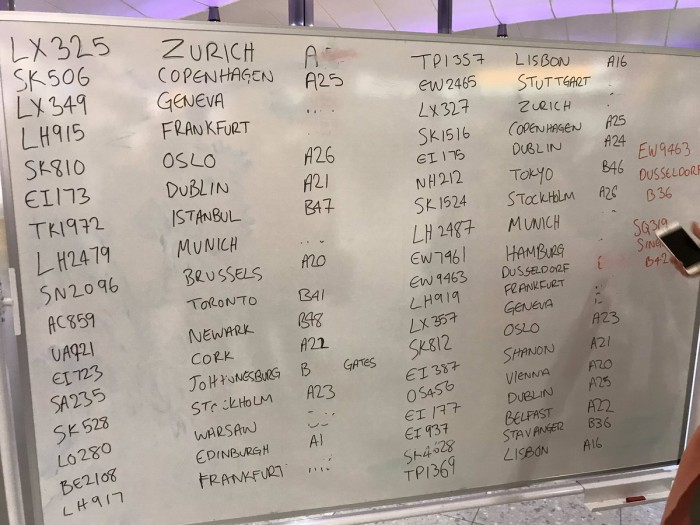 LX325 ZURICH A
SK506 COPENHAGEN A25
LX349 GENEVA
LH915 FRANKFURT
SK810 OSLO A26
EI173 DUBLIN A21
TK1972 ISTANBUL B47
LH2479 MUNICH
SN2096 BRUSSELS A20
AC859 TORONTO B41
UA921 NEWARK B48
EI723 CORK A22
SA235 JOHANNESBURG B GATES
SK528 STOCKHOLM A23
LO280 WARSAW
BE2108 EDINBURGH A1
LH917 FRANKFURT
TP1357 LISBON A16
EW2465 STUTTGART
LX327 ZURICH
SK1516 COPENHAGEN A25
EI175 DUBLIN A24
NH212 TOKYO B46
SK1524 STOCKHOLM A26
LH2487 MUNICH
EW7961 HAMBURG
EW9463 DUSSELDORF
LH919 FRANKFURT
LX357 GENEVA
SK812 OSLO A23
EI387 SHANON A21
OS456 VIENNA A20
EI177 DUBLIN A25
EI937 BELFAST A22
SK4028 STAVANGER B36
TP1369 LISBON A16
EW9463
DUSSELDORF
B36